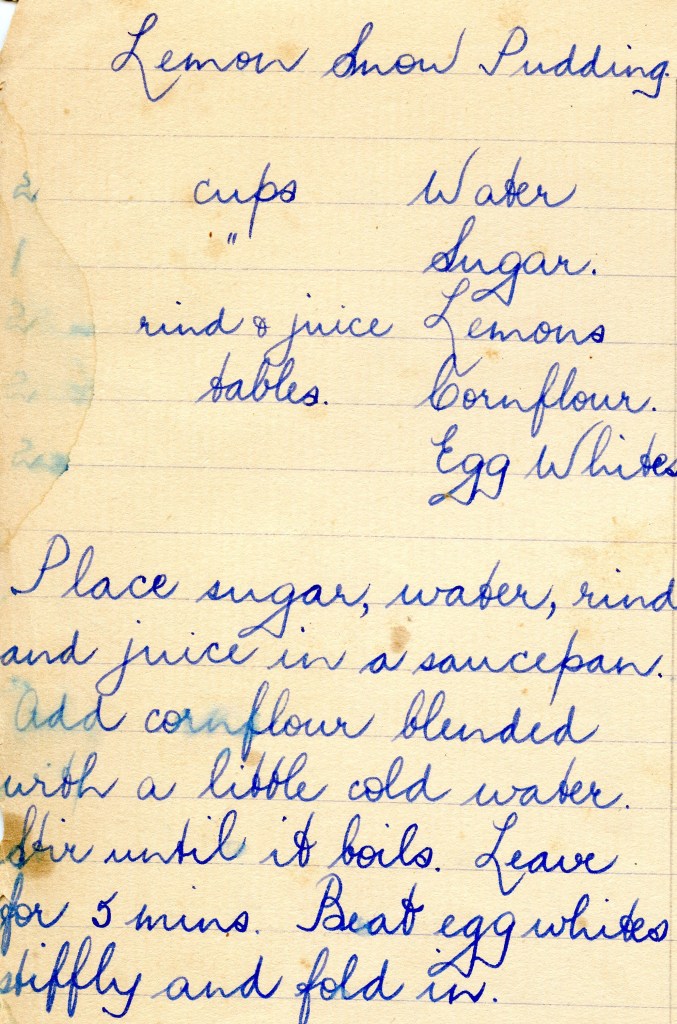 Lemon Snow Pudding.
2 cups Water
1 " Sugar.
2 rind & juice Lemons
2 tables. Cornflour.
2 Egg Whites
Place sugar, water, rind
and juice in a saucepan.
Add cornflour blended
with a little cold water.
Stir until it boils. Leave
for 5 mins. Beat egg whites
stiffly and fold in.